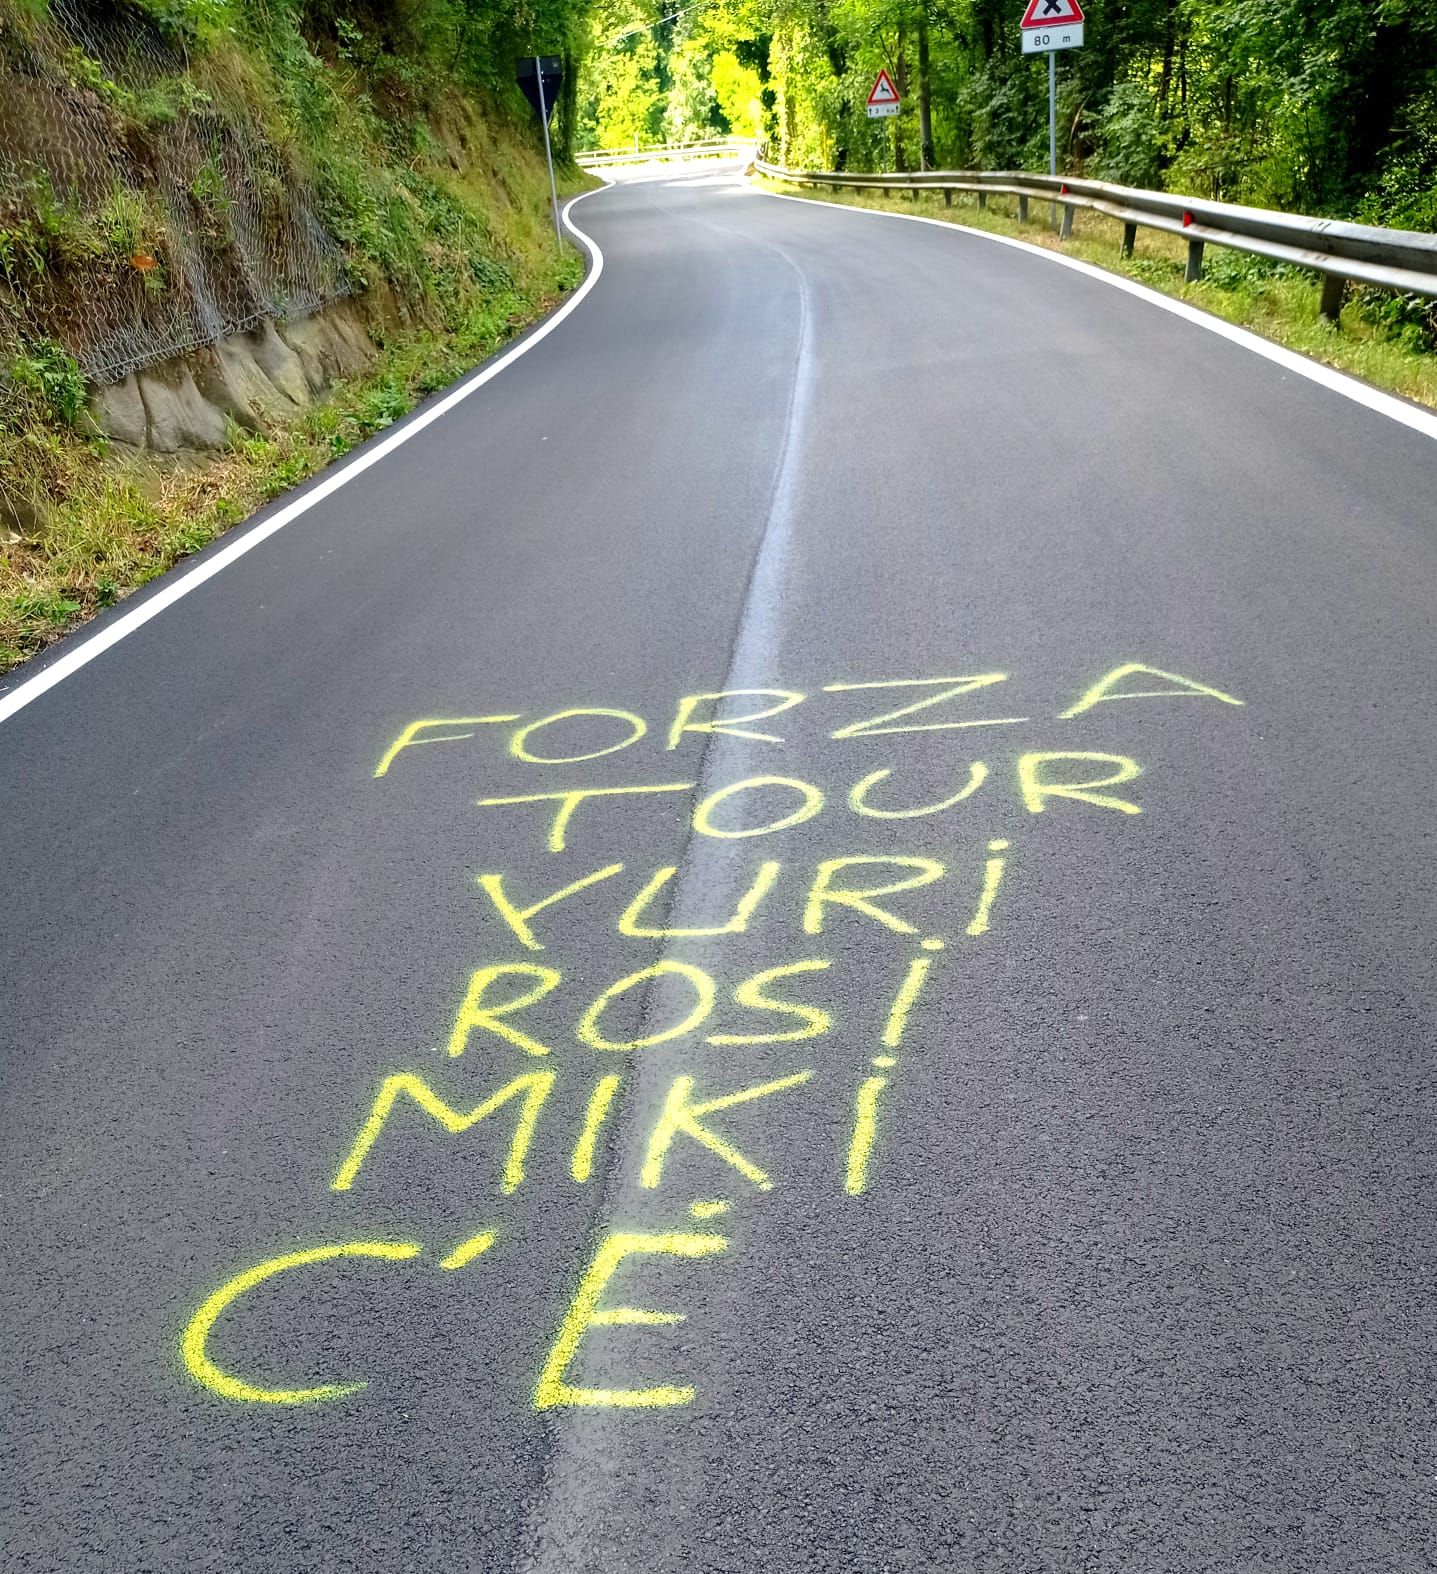 80 m
FORZA
TOUR
YURi
ROSi
MIKi
C'È